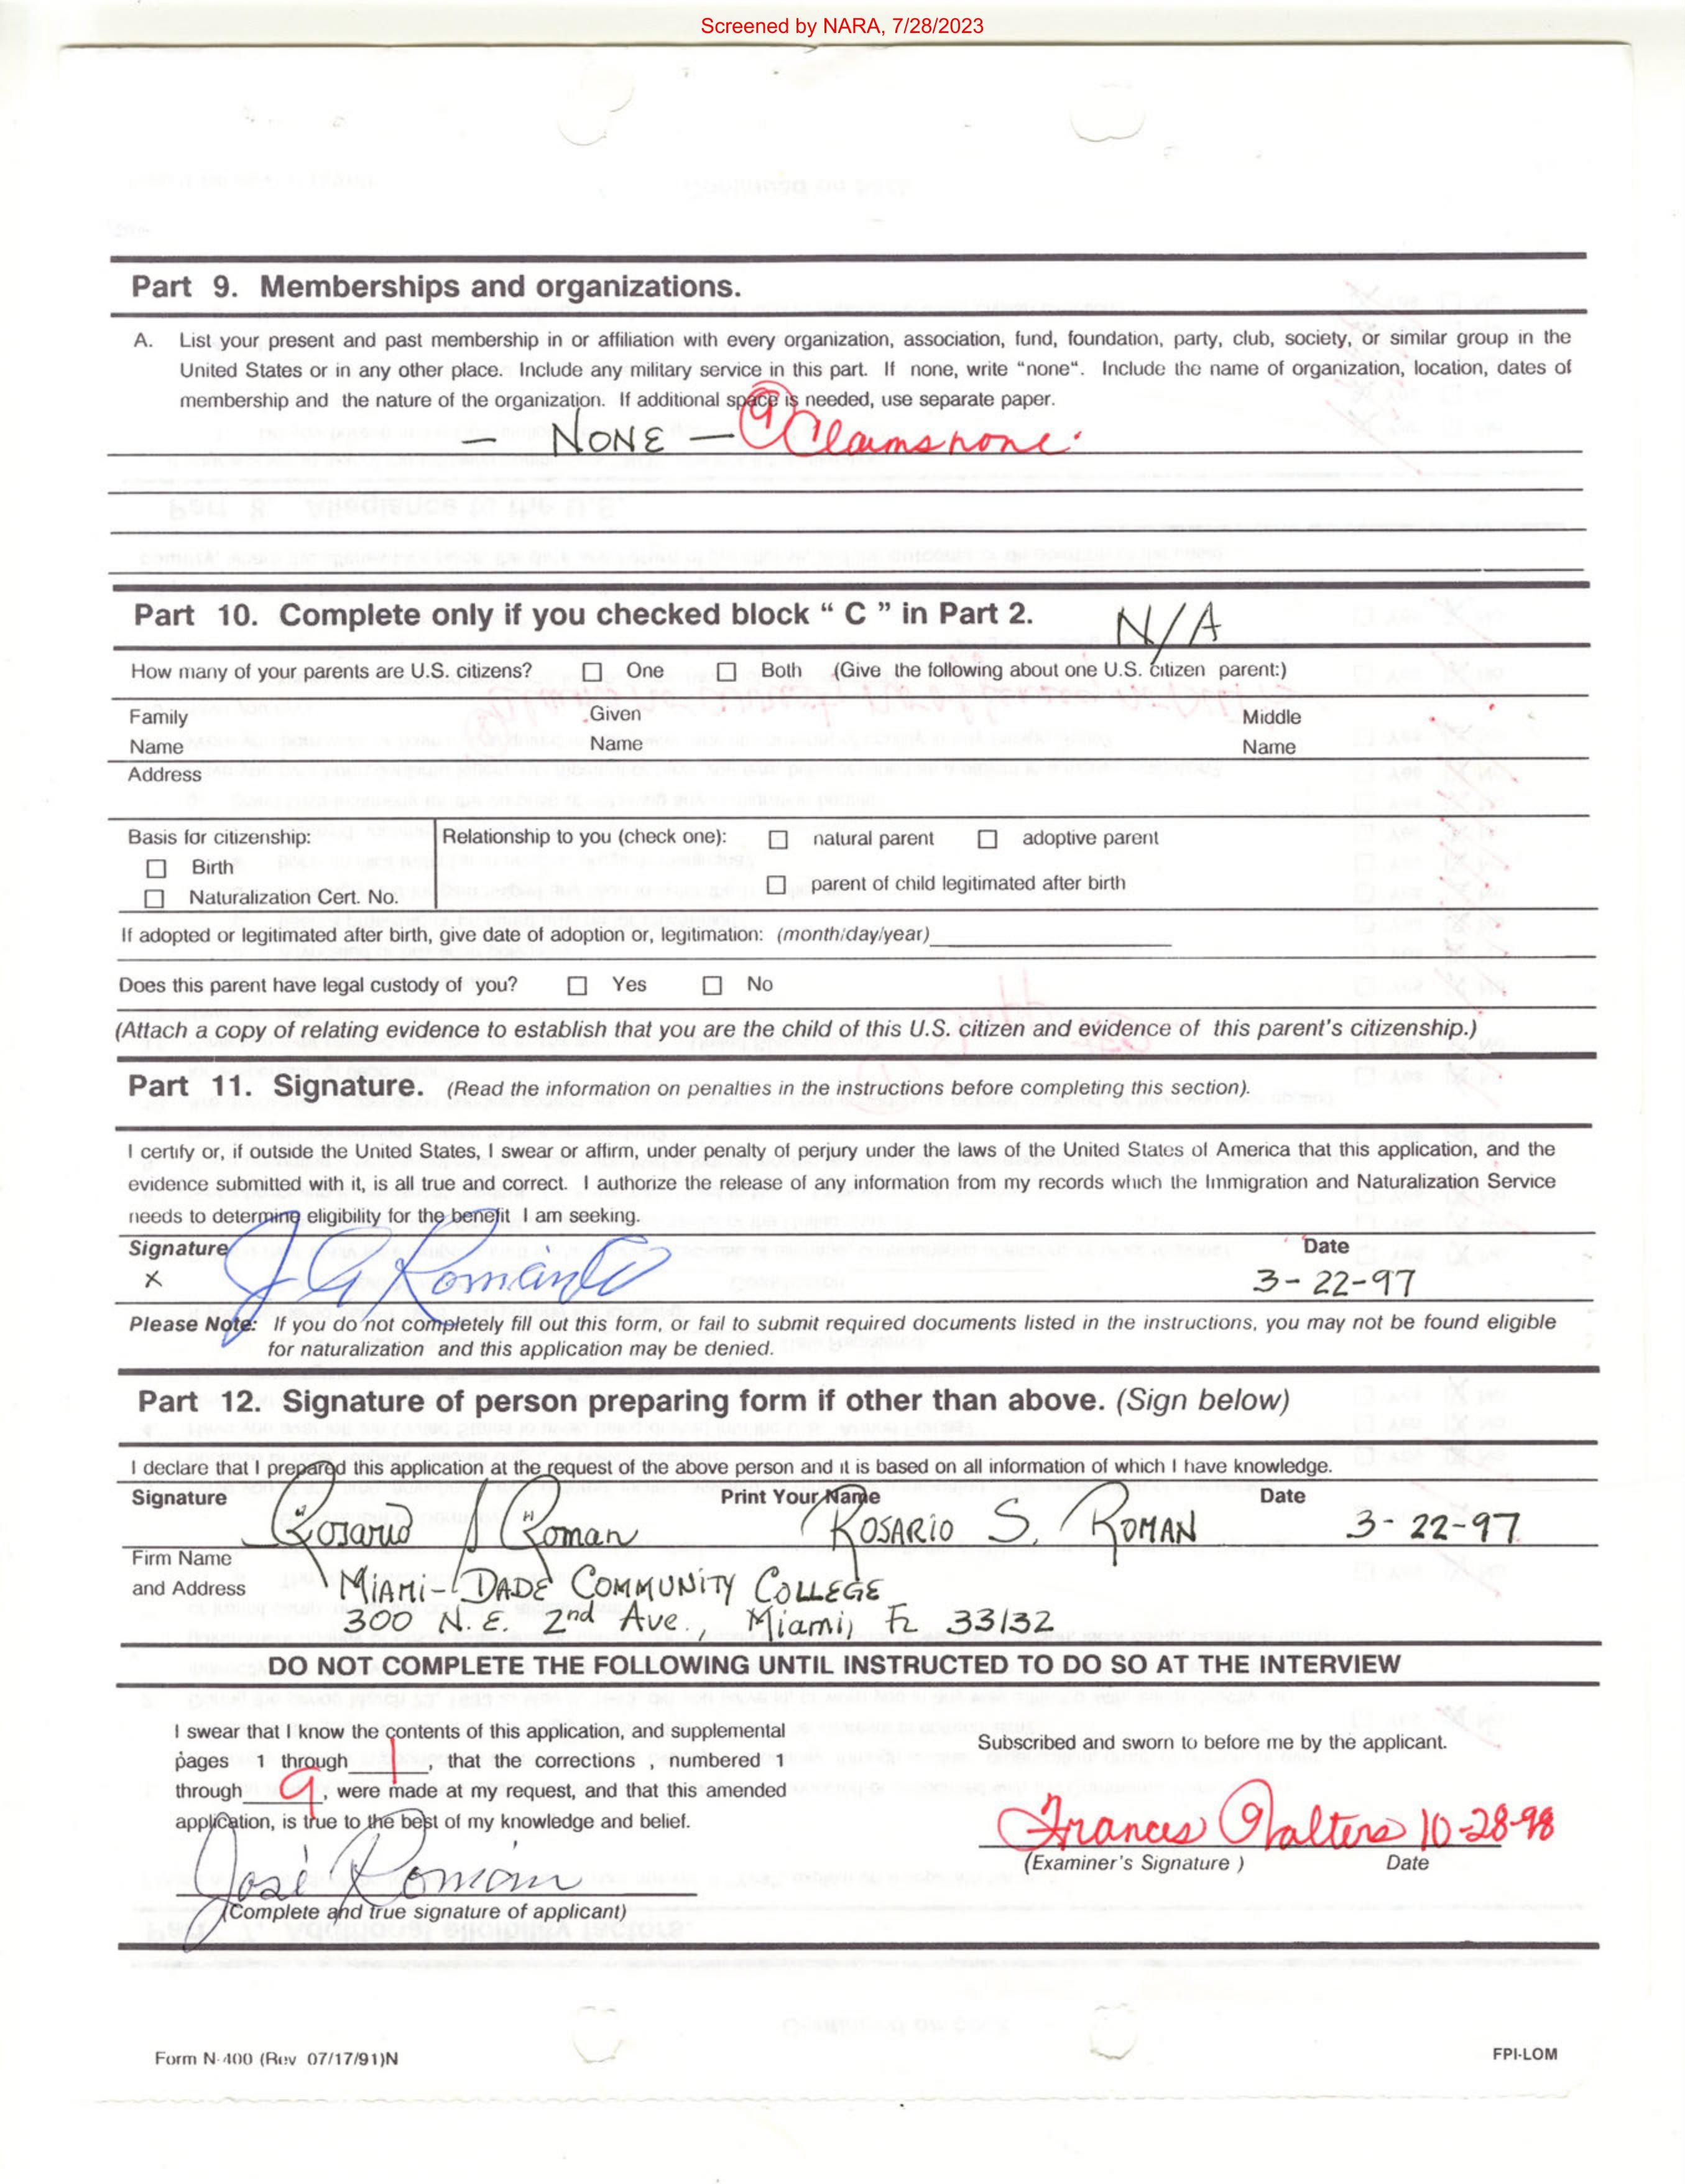 Screened by NARA, 7/28/2023
Part 9. Memberships and organizations.
A. List your present and past membership in or affiliation with every organization, association, fund, foundation, party, club, society, or similar group in the
United States or in any other place. Include any military service in this part. If none, write "none". Include the name of organization, location, dates of
membership and the nature of the organization. If additional space is needed, use separate paper.
— NONE — 9 Claims none.
Part 10. Complete only if you checked block " C " in Part 2. N/A
How many of your parents are U.S. citizens? ☐ One ☐ Both (Give the following about one U.S. citizen parent:)
Family Given Middle
Name Name Name
Address
Basis for citizenship: Relationship to you (check one): ☐ natural parent ☐ adoptive parent
☐ Birth
☐ parent of child legitimated after birth
☐ Naturalization Cert. No.
If adopted or legitimated after birth, give date of adoption or, legitimation: (month/day/year)
Does this parent have legal custody of you? ☐ Yes ☐ No
(Attach a copy of relating evidence to establish that you are the child of this U.S. citizen and evidence of this parent's citizenship.)
Part 11. Signature. (Read the information on penalties in the instructions before completing this section).
I certify or, if outside the United States, I swear or affirm, under penalty of perjury under the laws of the United States of America that this application, and the
evidence submitted with it, is all true and correct. I authorize the release of any information from my records which the Immigration and Naturalization Service
needs to determine eligibility for the benefit I am seeking.
Signature Date
x J G Román 3-22-97
Please Note: If you do not completely fill out this form, or fail to submit required documents listed in the instructions, you may not be found eligible
for naturalization and this application may be denied.
Part 12. Signature of person preparing form if other than above. (Sign below)
I declare that I prepared this application at the request of the above person and it is based on all information of which I have knowledge.
Signature Print Your Name Date
Rosario S Roman ROSARIO S. ROMAN 3-22-97
Firm Name
and Address MIAMI-DADE COMMUNITY COLLEGE
300 N.E. 2nd Ave., Miami, FL 33132
DO NOT COMPLETE THE FOLLOWING UNTIL INSTRUCTED TO DO SO AT THE INTERVIEW
I swear that I know the contents of this application, and supplemental
pages 1 through 1, that the corrections , numbered 1
through 9, were made at my request, and that this amended
application, is true to the best of my knowledge and belief.
José Román
(Complete and true signature of applicant)
Subscribed and sworn to before me by the applicant.
Frances Walters 10-28-98
(Examiner's Signature ) Date
Form N-400 (Rev 07/17/91)N FPI-LOM